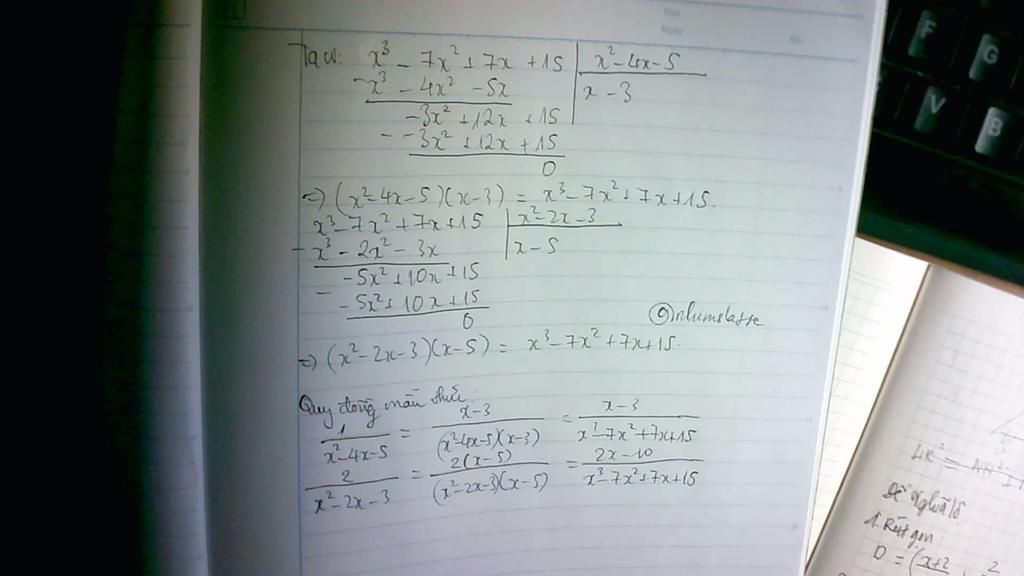 Ta có: x³ - 7x² + 7x + 15 | x² - 4x - 5
- x³ - 4x² - 5x | x - 3
-3x² + 12x + 15
- -3x² + 12x + 15
0
=> (x² - 4x - 5)(x - 3) = x³ - 7x² + 7x + 15.
x³ - 7x² + 7x + 15 | x² - 2x - 3
- x³ - 2x² - 3x | x - 5
-5x² + 10x + 15
- -5x² + 10x + 15
0
=> (x² - 2x - 3)(x - 5) = x³ - 7x² + 7x + 15.
Quy đồng mẫu thức
1/(x² - 4x - 5) = (x - 3)/((x² - 4x - 5)(x - 3)) = (x - 3)/(x³ - 7x² + 7x + 15)
2/(x² - 2x - 3) = 2(x - 5)/((x² - 2x - 3)(x - 5)) = (2x - 10)/(x³ - 7x² + 7x + 15)
F
G
V
B
1. Rút gọn